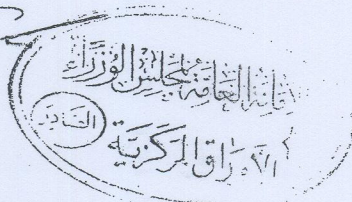 الأمانة العامة لمجلس الوزراء
الصادر
الأوراق المركزية